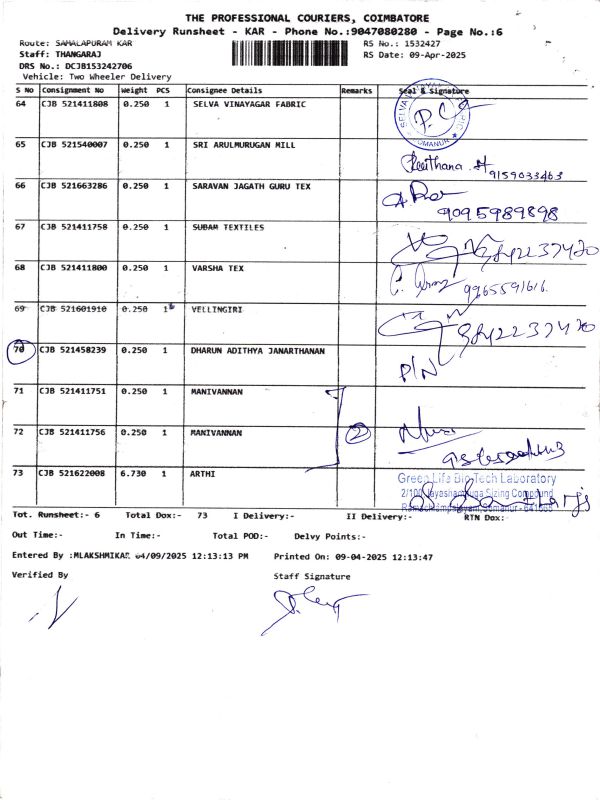 THE PROFESSIONAL COURIERS, COIMBATORE
Delivery Runsheet - KAR - Phone No.:9047080280 - Page No.:6
Route: SAMALAPURAM KAR RS No.: 1532427
Staff: THANGARAJ RS Date: 09-Apr-2025
DRS No.: DCJB153242706
Vehicle: Two Wheeler Delivery
S No Consignment No Weight PCS Consignee Details Remarks Seal & Signature
64 CJB 521411808 0.250 1 SELVA VINAYAGAR FABRIC
65 CJB 521540007 0.250 1 SRI ARULMURUGAN MILL
9159033463
66 CJB 521663286 0.250 1 SARAVAN JAGATH GURU TEX
9095989898
67 CJB 521411758 0.250 1 SUBAM TEXTILES
9842237420
68 CJB 521411800 0.250 1 VARSHA TEX
9965591616.
69 CJB 521601910 0.250 1 VELLINGIRI
9842237420
70 CJB 521458239 0.250 1 DHARUN ADITHYA JANARTHANAN
P/N
71 CJB 521411751 0.250 1 MANIVANNAN
72 CJB 521411756 0.250 1 MANIVANNAN
2
73 CJB 521622008 6.730 1 ARTHI
Green Life Bio Tech Laboratory
Tot. Runsheet:- 6 Total Dox:- 73 I Delivery:- II Delivery:- RTN Dox:-
Out Time:- In Time:- Total POD:- Delvy Points:-
Entered By :MLAKSHMIKAR 04/09/2025 12:13:13 PM Printed On: 09-04-2025 12:13:47
Verified By Staff Signature